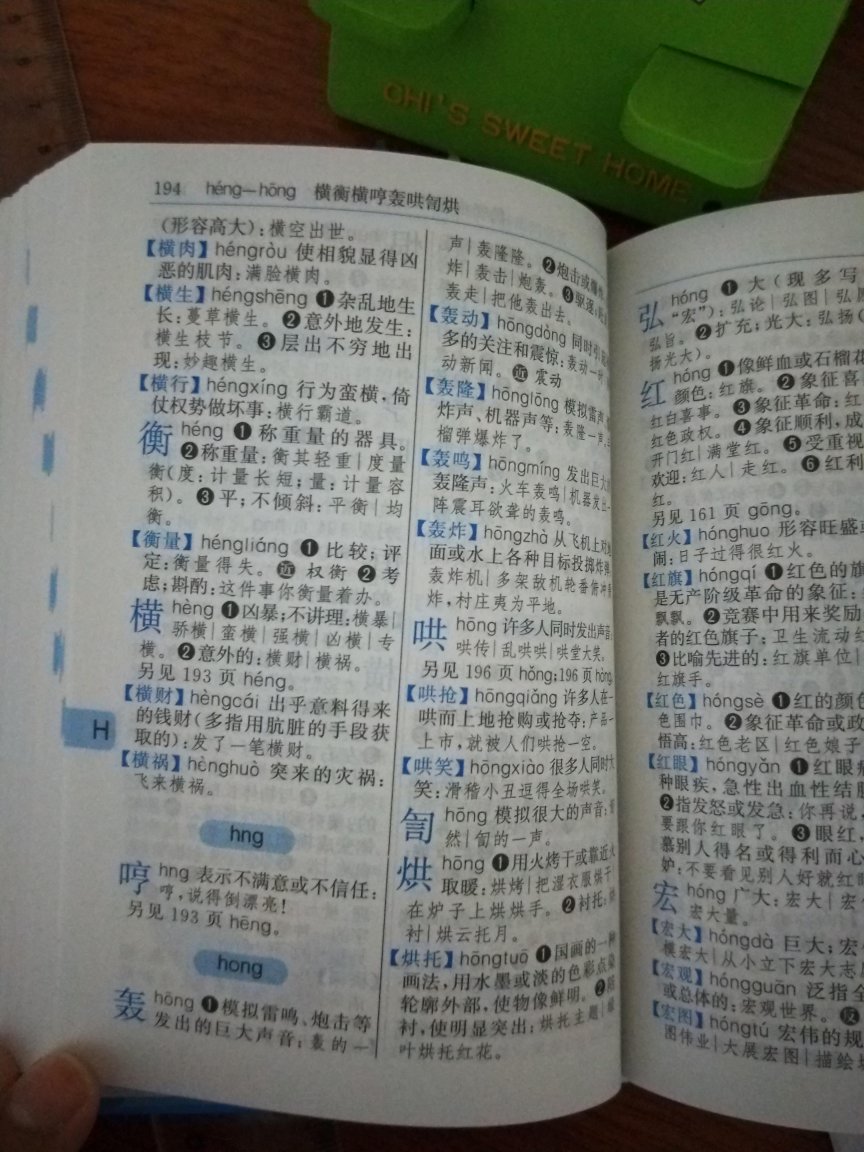 CHI'S SWEET HOME
194 héng—hōng 横衡横哼轰哄訇烘
(形容高大):横空出世。
【横肉】héngròu 使相貌显得凶
恶的肌肉:满脸横肉。
【横生】héngshēng ❶杂乱地生
长:蔓草横生。❷意外地发生:
横生枝节。❸层出不穷地出
现:妙趣横生。
【横行】héngxíng 行为蛮横,倚
仗权势做坏事:横行霸道。
衡 héng ❶称重量的器具。
❷称重量:衡其轻重|度量
衡(度:计量长短;量:计量容
积)。❸平;不倾斜:平衡|均
衡。
【衡量】héngliáng ❶比较;评
定:衡量得失。近 权衡 ❷考
虑;斟酌:这件事你衡量着办。
横 hèng ❶凶暴;不讲理:横暴|
骄横|蛮横|强横|凶横|专
横。❷意外的:横财|横祸。
另见 193 页 héng。
【横财】hèngcái 出乎意料得来
的钱财(多指用肮脏的手段获
取的):发了一笔横财。
【横祸】hènghuò 突来的灾祸:
飞来横祸。
H
hng
哼 hng 表示不满意或不信任:
哼,说得倒漂亮!
另见 193 页 hēng。
hong
轰 hōng ❶模拟雷鸣、炮击等
发出的巨大声音:轰的一
声|轰隆隆。❷炮击或爆
炸|轰击|炮轰。❸驱逐;
轰走|把他轰出去。
【轰动】hōngdòng 同时引起
多的关注和震惊:轰动一时
动新闻。近 震动
【轰隆】hōnglōng 模拟雷声、
炸声、机器声等:轰隆一声,
榴弹爆炸了。
【轰鸣】hōngmíng 发出巨大
轰隆声:火车轰鸣|机器发出一
阵震耳欲聋的轰鸣。
【轰炸】hōngzhà 从飞机上对
面或水上各种目标投掷炸弹
轰炸机|多架敌机轮番俯冲
炸,村庄夷为平地。
哄 hōng 许多人同时发出声音
哄传|乱哄哄|哄堂大笑。
另见 196 页 hǒng;196 页 hòng。
【哄抢】hōngqiǎng 许多人在一
哄而上地抢购或抢夺:产品一
上市,就被人们哄抢一空。
【哄笑】hōngxiào 很多人同时大
笑:滑稽小丑逗得全场哄笑。
訇 hōng 模拟很大的声音:
然|訇的一声。
烘 hōng ❶用火烤干或靠近火
取暖:烘烤|把湿衣服烘干
在炉子上烘烘手。❷衬托:
衬|烘云托月。
【烘托】hōngtuō ❶国画的一种
画法,用水墨或淡的色彩点染
轮廓外部,使物像鲜明。❷陪
衬,使明显突出:烘托主题|
叶烘托红花。
弘 hóng ❶大(现多写
“宏”):弘论|弘图|弘愿
弘旨。❷扩充;光大:弘扬(
扬光大)。
红 hóng ❶像鲜血或石榴花
颜色:红旗。❷象征喜
红白喜事。❸象征革命:红
红色政权。❹象征顺利,成
开门红|满堂红。❺受重视
欢迎:红人|走红。❻红利
红。
另见 161 页 gōng。
【红火】hónghuo 形容旺盛
闹:日子过得很红火。
【红旗】hóngqí ❶红色的旗
是无产阶级革命的象征:
飘飘。❷竞赛中用来奖励
者的红色旗子:卫生流动红
❸比喻先进的:红旗单位|
红旗手。
【红色】hóngsè ❶红的颜色
色围巾。❷象征革命或政
悟高:红色老区|红色娘子
【红眼】hóngyǎn ❶红眼病
种眼疾,急性出血性结膜
❷指发怒或发急:你再说,
要跟你红眼了。❸眼红
慕别人得名或得利而心
妒:不要看见别人好就红眼
宏 hóng 广大:宏大|宏
宏大量。
【宏大】hóngdà 巨大;宏
模宏大|从小立下宏大志
【宏观】hóngguān 泛指全
或总体的:宏观世界。反
【宏图】hóngtú 宏伟的规
图伟业|大展宏图|描绘